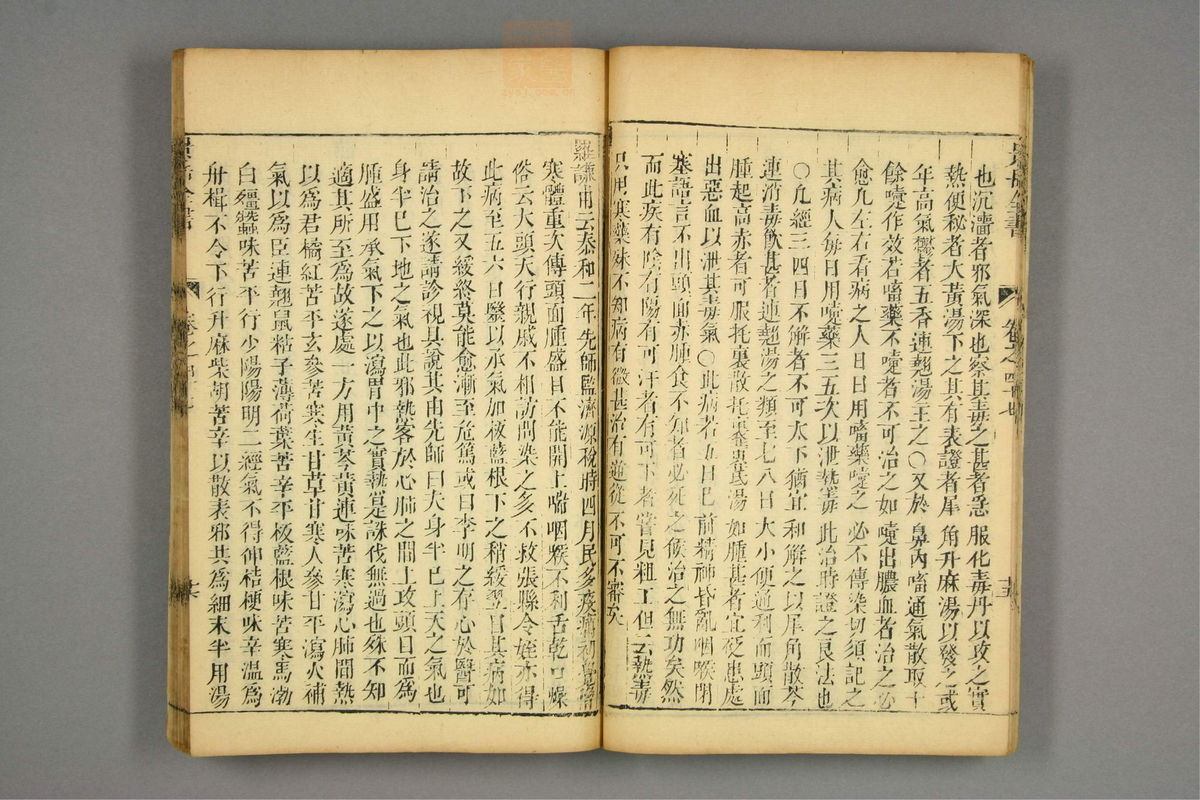 也沉濇者邪氣深也察其毒之甚者急服化毒丹以攻之實
熱便秘者大黃湯下之其有表證者犀角升麻湯以發之或
年高氣鬱者五香連翹湯主之〇又於鼻內㗜通氣散取十
餘嚏作效若㗜藥不嚏者不可治之如嚏出膿血者治之必
愈凡左右看病之人日日用㗜藥嚏之必不傳染切須記之
其病人每日用嚏藥三五次以泄熱毒此治時證之良法也
〇凡經三四日不解者不可太下猶宜和解之以犀角散芩
連消毒飲甚者連翹湯之類至七八日大小便通利而頭面
腫起高赤者可服托裏散托裏黃芪湯如腫甚者宜砭患處
出惡血以泄其毒氣〇此病若五日已前精神昏亂咽喉閉
塞語言不出頭面亦腫食不知者必死之候治之無功矣然
而此疾有陰有陽有可汗者有可下者嘗見粗工但云熱毒
只用寒藥殊不知病有微甚治有逆從不可不審矣
羅謙甫云泰和二年先師監濟源稅時四月民多疫癘初覺憎
寒體重次傳頭面腫盛目不能開上喘咽喉不利舌乾口燥
俗云大頭天行親戚不相訪問染之多不救張縣令姪亦得
此病至五六日醫以承氣加板藍根下之稍緩翌日其病如
故下之又緩終莫能愈漸至危篤或曰李明之存心於醫可
請治之遂請診視具說其由先師曰夫身半已上天之氣也
身半已下地之氣也此邪熱客於心肺之間上攻頭目而為
腫盛用承氣下之以瀉胃中之實熱是誅伐無過也殊不知
適其所至為故遂處一方用黃芩黃連味苦寒瀉心肺間熱
以為君橘紅苦平玄參苦寒生甘草甘寒人參甘平瀉火補
氣以為臣連翹鼠粘子薄荷葉苦辛平板藍根味苦寒馬勃
白殭蠶味苦平行少陽陽明二經氣不得伸桔梗味辛溫為
舟楫不令下行升麻柴胡苦辛以散表邪共為細末半用湯